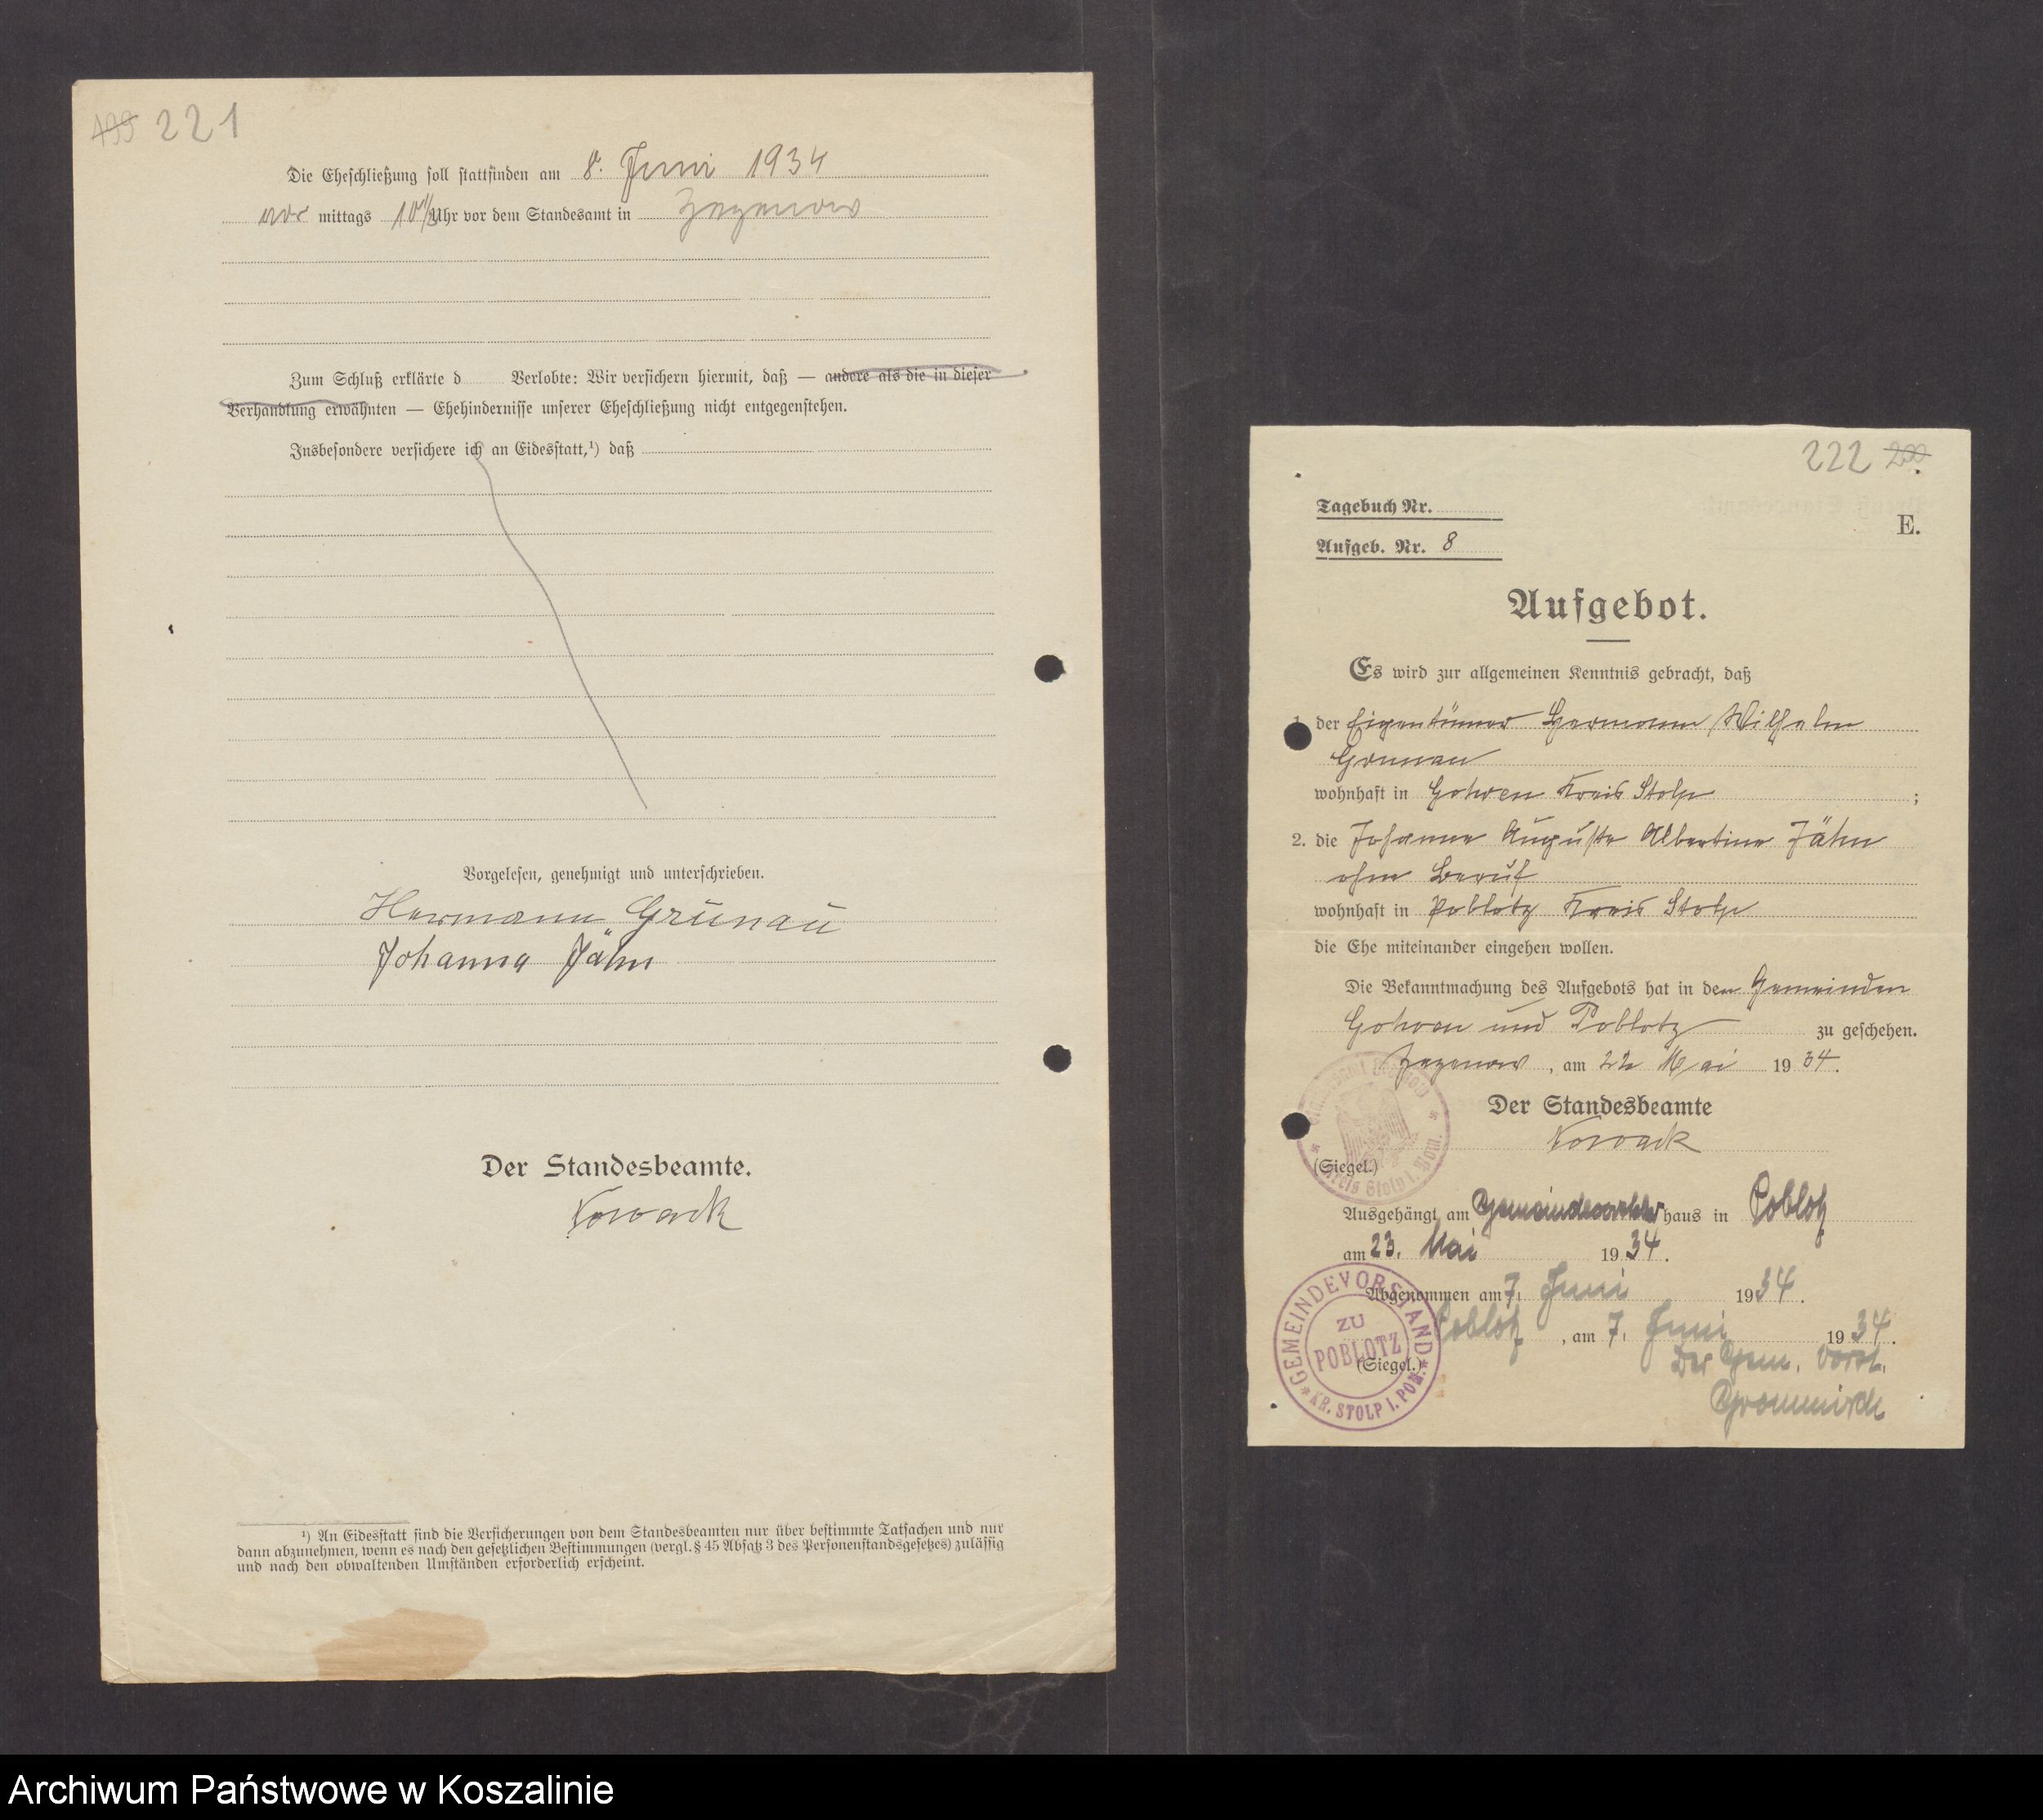 199 221
Die Eheschließung soll stattfinden am 8. Juni 1934
vor mittags 10 Uhr vor dem Standesamt in Zezenow
Zum Schluß erklärte d Verlobte: Wir versichern hiermit, daß — andere als die in dieser
Verhandlung erwähnten — Ehehindernisse unserer Eheschließung nicht entgegenstehen.
Insbesondere versichere ich an Eidesstatt,¹) daß
Vorgelesen, genehmigt und unterschrieben.
Hermann Grünau
Johanna Jähn
Der Standesbeamte.
Nowack
¹) An Eidesstatt sind die Versicherungen von dem Standesbeamten nur über bestimmte Tatsachen und nur
dann abzunehmen, wenn es nach den gesetzlichen Bestimmungen (vergl. § 45 Absatz 3 des Personenstandsgesetzes) zulässig
und nach den obwaltenden Umständen erforderlich erscheint.
222 200
Tagebuch Nr.
E.
Aufgeb. Nr. 8
Aufgebot.
Es wird zur allgemeinen Kenntnis gebracht, daß
1. der Eigentümer Hermann Wilhelm
Grunau
wohnhaft in Gohren Kreis Stolp ;
2. die Johanne Auguste Albertine Jähn
ohne Beruf
wohnhaft in Poblotz Kreis Stolp
die Ehe miteinander eingehen wollen.
Die Bekanntmachung des Aufgebots hat in den Gemeinden
Gohren und Poblotz zu geschehen.
Zezenow, am 22 Mai 1934.
Der Standesbeamte
Nowack
(Siegel.)
Kreis Stolp i. Pom.
Ausgehängt am haus in Poblotz
am 23. Mai 1934.
Abgenommen am 7. Juni 1934.
Poblotz, am 7. Juni 1934.
(Siegel.)
GEMEINDEVORSTAND
ZU
POBLOTZ
* KR. STOLP I. POM. *
Der Gem. Vorst.
Archiwum Państwowe w Koszalinie